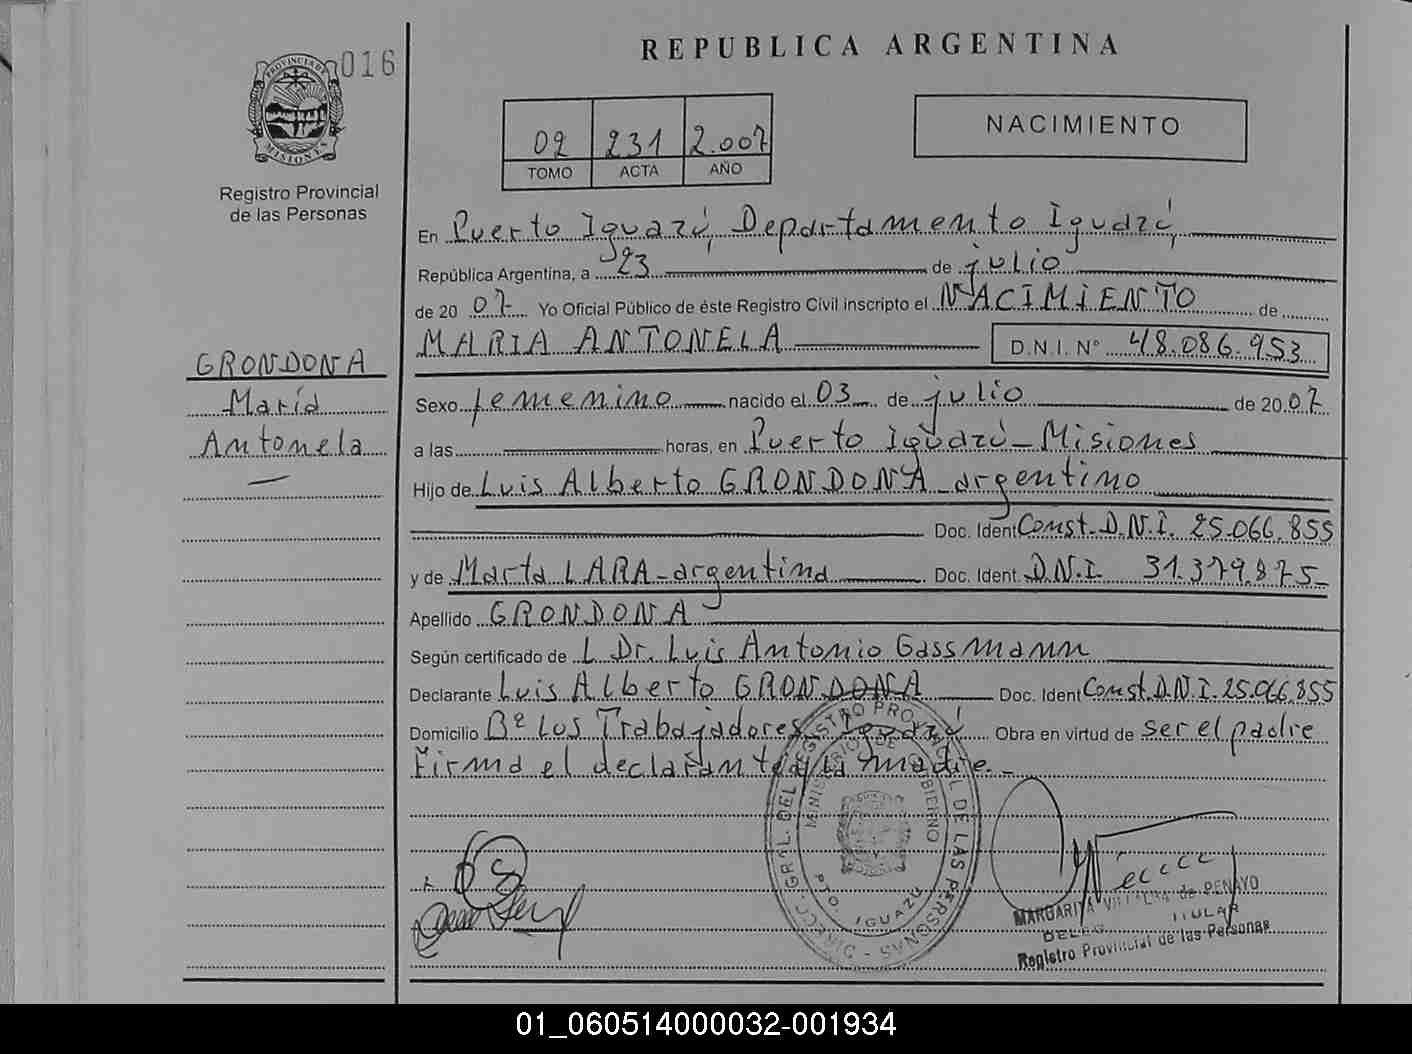 016
PROVINCIA DE
MISIONES
Registro Provincial
de las Personas
GRONDONA
María
Antonela
REPUBLICA ARGENTINA
02 231 2.007
TOMO ACTA AÑO
NACIMIENTO
En Puerto Iguazú, Departamento Iguazú,
República Argentina, a 23 de julio
de 20 07 Yo Oficial Público de éste Registro Civil inscripto el NACIMIENTO de
MARIA ANTONELA D.N.I. N° 48.086.953
Sexo femenino nacido el 03 de julio de 20 07
a las horas, en Puerto Iguazú - Misiones
Hijo de Luis Alberto GRONDONA - argentino
Doc. Ident Const. D.N.I. 25.066.855
y de Marta LARA - argentina Doc. Ident. D.N.I. 31.379.875
Apellido GRONDONA
Según certificado de L Dr. Luis Antonio Gassmann
Declarante Luis Alberto GRONDONA Doc. Ident Const. D.N.I. 25.066.855
Domicilio Bº Los Trabajadores - Iguazú Obra en virtud de ser el padre
Firma el declarante y la madre. -
DIRECC. GRAL. DEL REGISTRO PROVINCIAL DE LAS PERSONAS
MINISTERIO DE GOBIERNO
PTO. IGUAZU
MARGARITA VILLALBA de PENAYO
TITULAR
Registro Provincial de las Personas
01_060514000032-001934